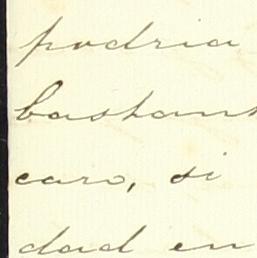 podria
bastan
caro, si
dad en